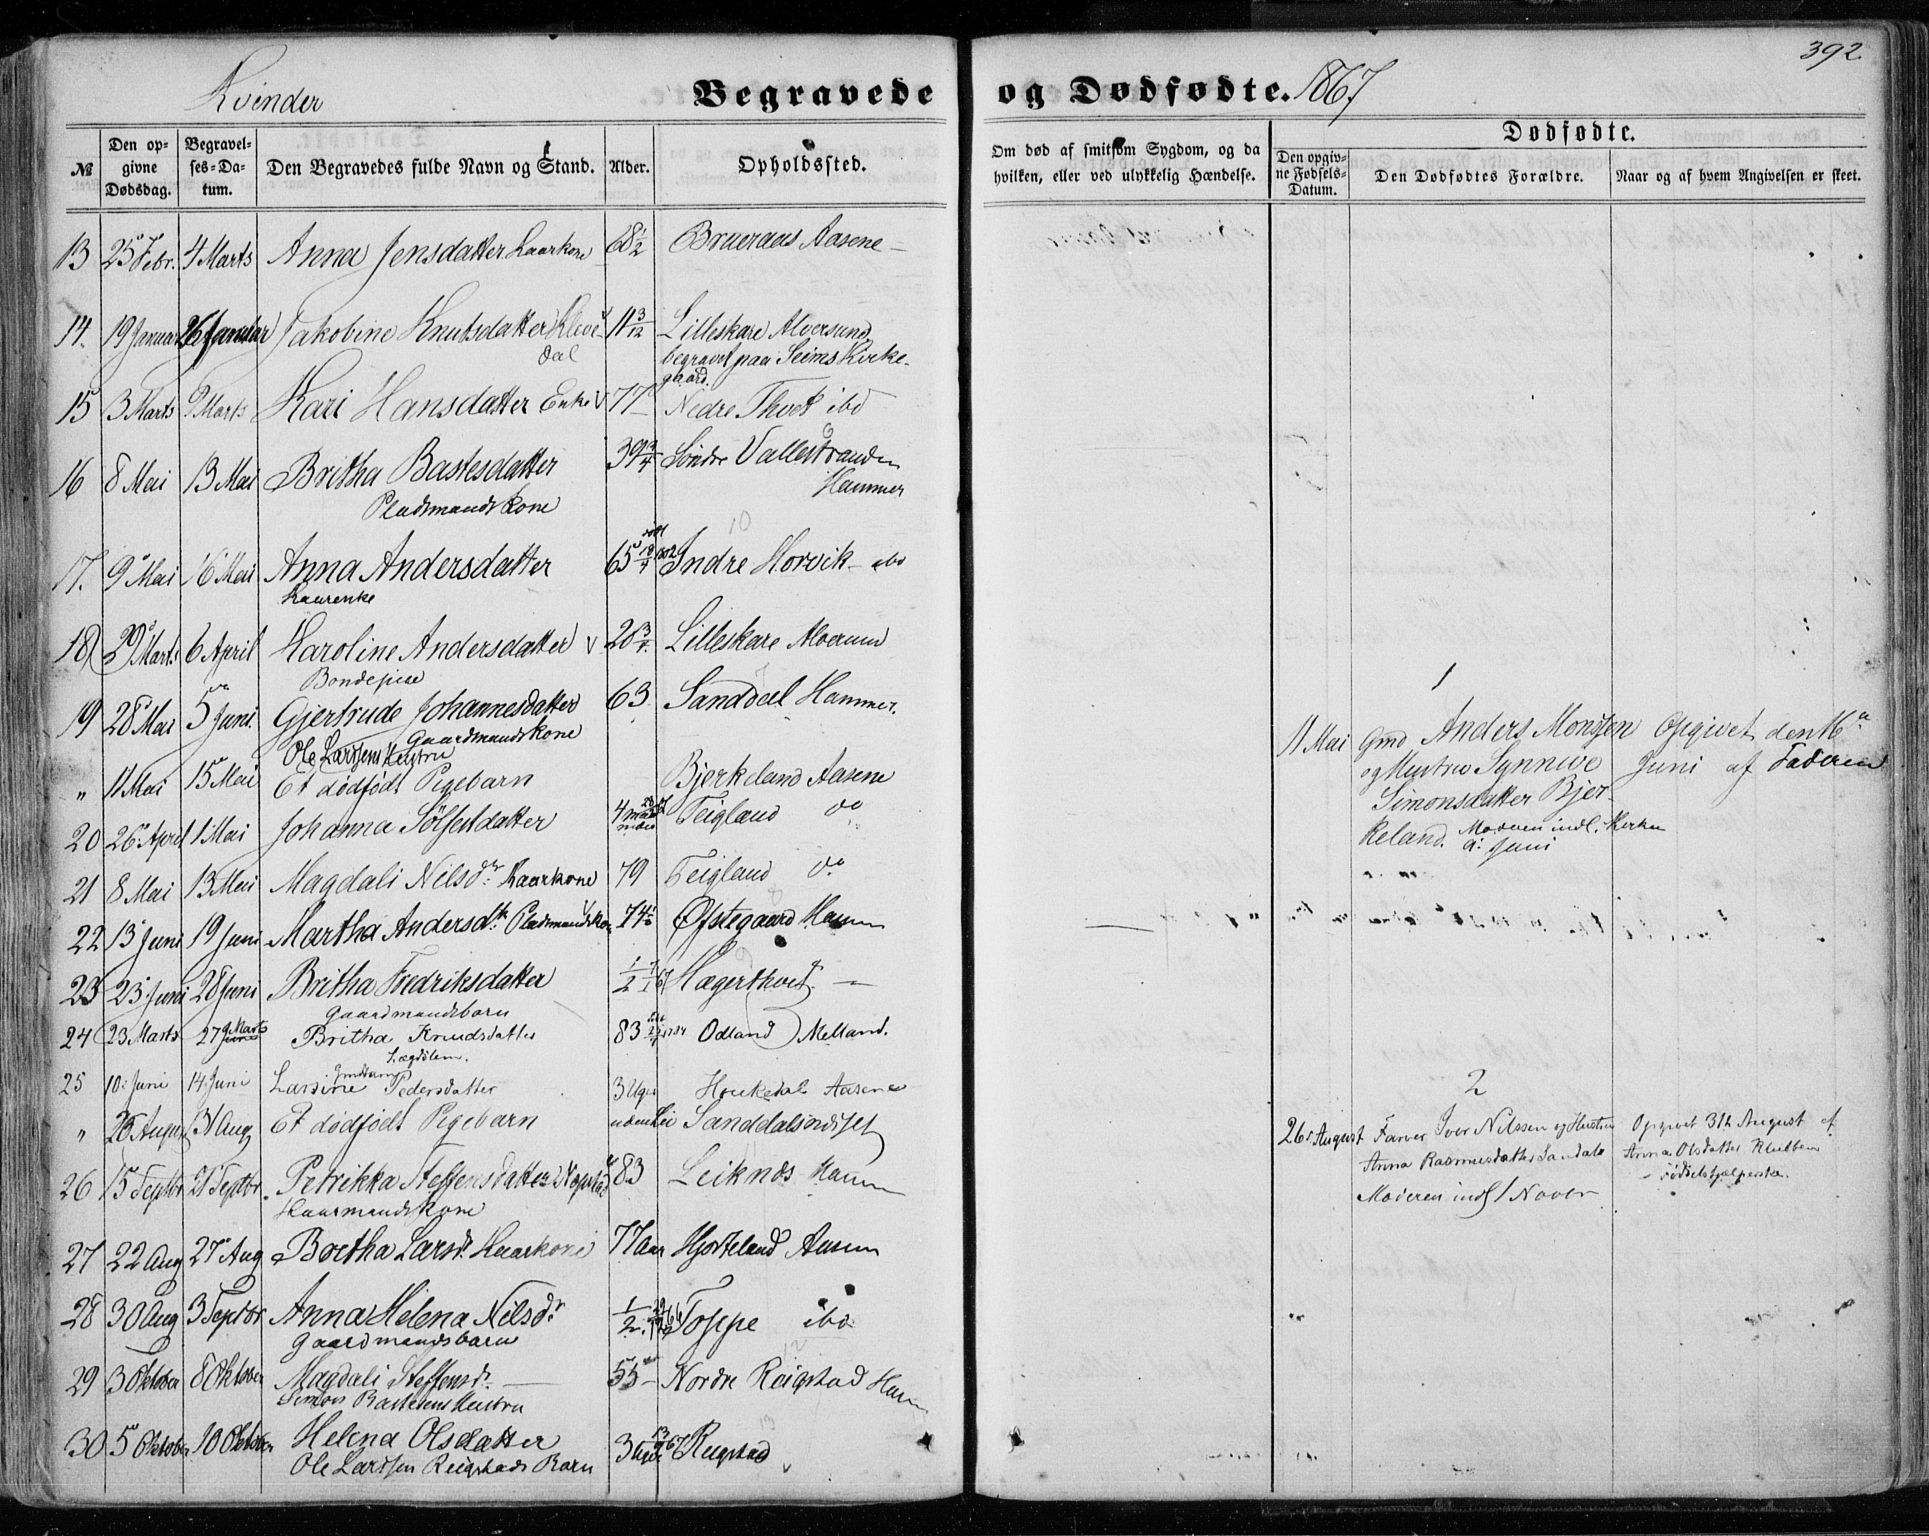 392
Kvinder
Begravede og Dødfødte. 1867
№ Den opgivne Dødsdag. Begravelses-Datum. Den Begravedes fulde Navn og Stand. Alder. Opholdssted.
Om død af smitsom Sygdom, og da hvilken, eller ved ulykkelig Hændelse.
Dødfødte.
Den opgivne Fødsels-Datum. Den Dødfødtes Forældre. Naar og af hvem Angivelsen er skeet.
13 25 Febr. 4 Marts Anna Jensdatter Kaarkone 68 1/2 Aasene
14. 19 Januar 26 Januar Jakobine Knutsdatter Klevdal 11 3/12 Lilleskare Alversund
begravet paa Seims Kirkegaard.
15 3 Marts 9 Marts Kari Hansdatter Enke 77 Nedre Thvet ibd
16 8 Mai 13 Mai Britha Bastesdatter 39 3/4 Søndre Vallestranden
Pladsmands Kone Hammer
17. 9 Mai 16 Mai Anna Andersdatter 65 Indre Horvik ibd
Kaarenke
18 29 Marts 6 April Karoline Andersdatter 28 3/4 Lilleskare
19 28 Mai 5 Juni. Gjertrude Johannesdatter 63 Sanddal Hammer.
Gaardmandskone
Ole Larssens Hustru
„ 11 Mai 15 Mai Et dødfødt Pigebarn Bjerkeland Aasene
20 26 April 1 Mai Johanna Sølfestdatter 4 Teigland do
21 8 Mai 13 Mai Magdali Nilsdr. Kaarkone 79 Teigland do
22 13 Juni 19 Juni Martha Andersdtr. Pladsmandskone 74 1/2 Øfstegaard Ham
23 23 Juni 28 Juni Britha Fredriksdatter 1/2 Hægerthvet —
Gaardmandsbarn
24 23 Marts 27 Marts Britha Knudsdatter 83 Odland Melland.
Lægdslem.
25 10 Juni 14 Juni Larsine Pedersdatter 3 Uger Houkedal Aasene
„ 26 August 31 Aug Et dødfødt Pigebarn
26 15 Septbr 21 Septbr. Petrikka Steffensdatter 83 Leiknes Ham
Kaarmandskone
27 22 Aug 27 Aug Britha Larsdr. Kaarkone 77 Aar Hjorteland Aasene
28 30 Aug 3 Septbr Anna Helena Nilsdr 1/2 Toppe ibd
Gaardmandsbarn
29 3 Oktober 8 Oktober Magdali Steffensdr. 55 Nordre Reigstad Ham
Simon Bastesens Hustru
30 5 Oktober 10 Oktober Helena Olsdatter 3 Uger Reigstad
Ole Larssen Reigstads Barn
1
11 Mai Gmd Anders Monsen Opgivet den 16
og Hustru Synneve Juni af Faderen
Simonsdatter Bjerkeland.
Moderen indl. Kirken
Juni
2
26 August Farver Iver Nilssen og Hustru Opgivet 31te August af
Anna Rasmusdatter Sandal Anna Olsdatter Klubben
Moderen indl 1 Novbr Fødselshjælperske.